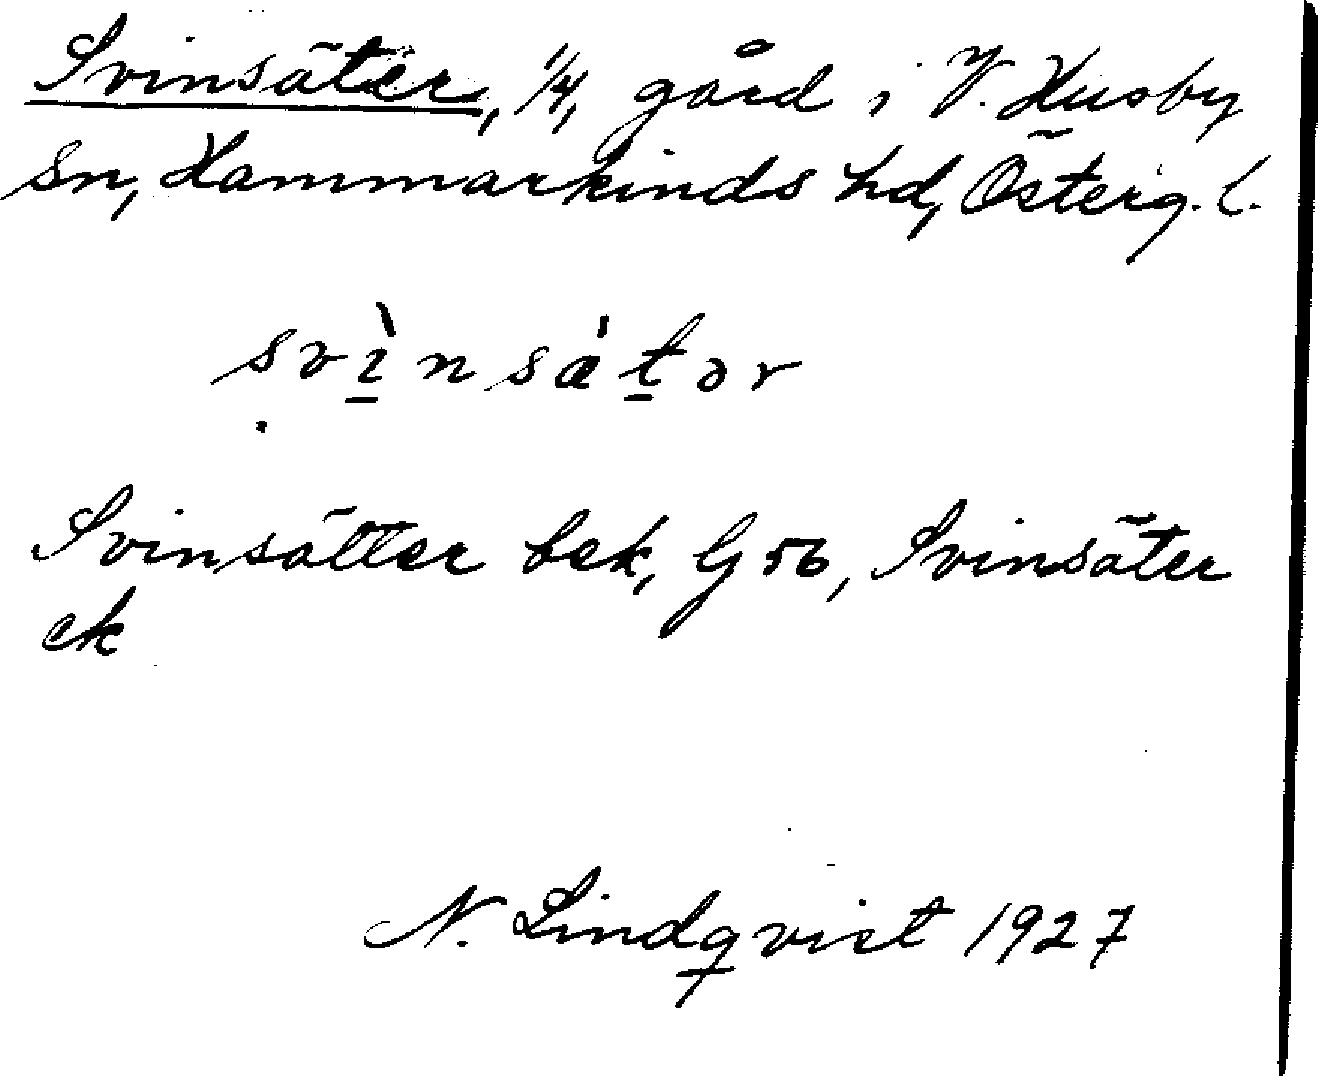 Svinsäter, 1/4, gård i V. Husby
sn, Hammarkinds hd, Österg. l.
svı̱̀nsα̍ṯər
Svinsätter bek, G 56, Svinsäter
ek
N. Lindqvist 1927